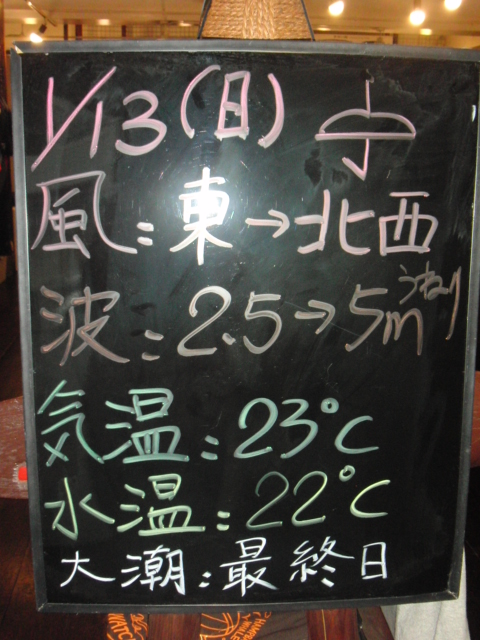 1/13(日)
風:東→北西
波:2.5→5m うねり
気温:23℃
水温:22℃
大潮:最終日